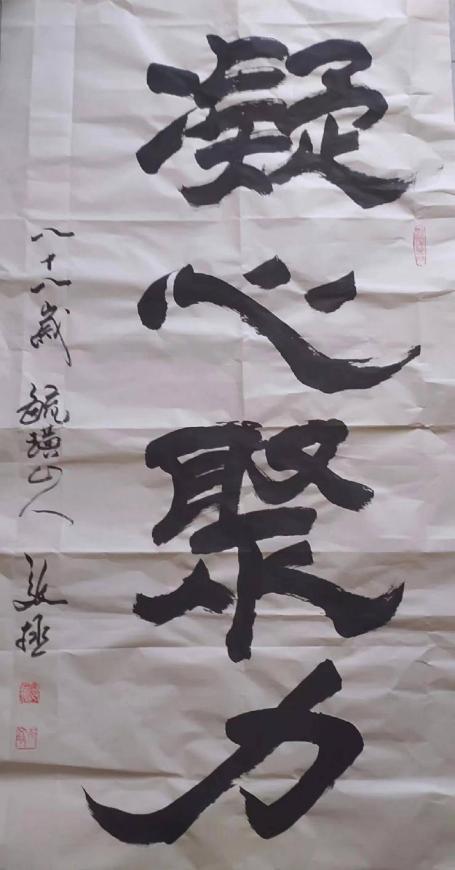 凝心聚力
八十八岁 毓璜山人